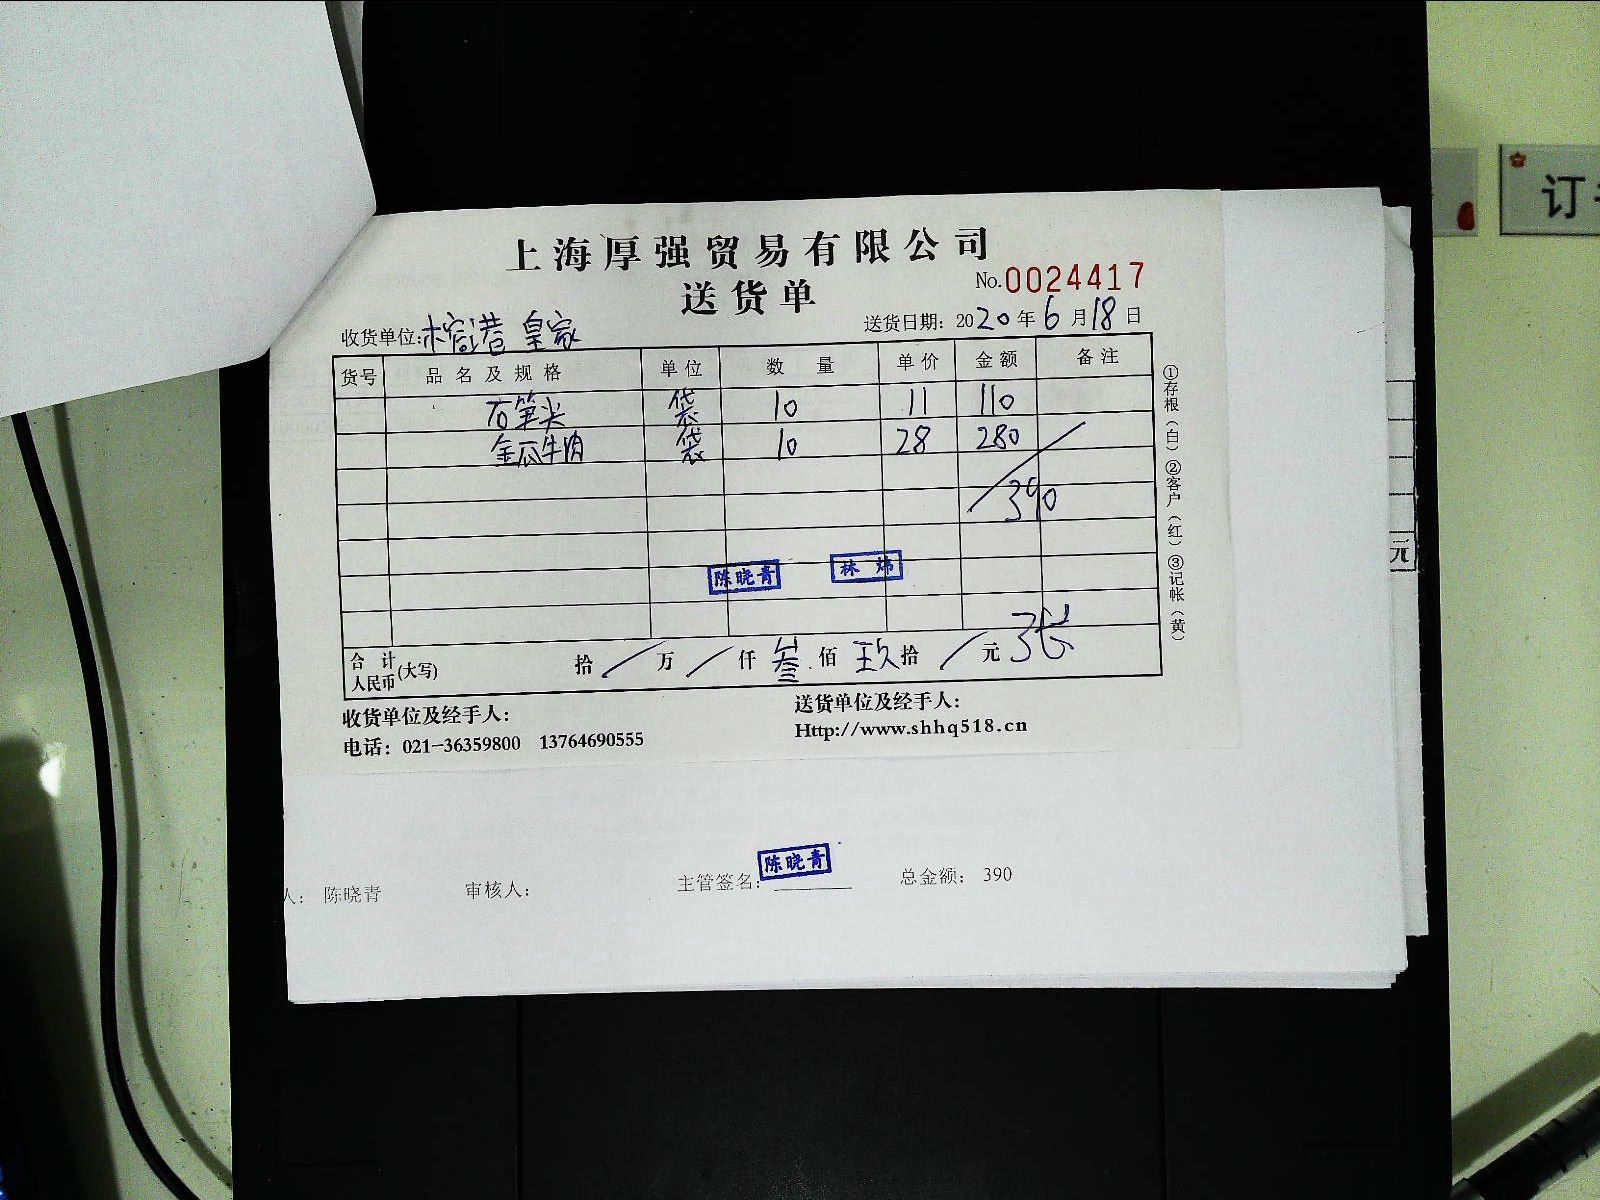 上海厚强贸易有限公司
送货单
No.0024417
收货单位:榕港 皇家
送货日期: 2020年6月18日
货号 品名及规格 单位 数量 单价 金额 备注
石笋尖 袋 10 11 110
金瓜牛肉 袋 10 28 280
390
陈晓青 林炜
合计人民币(大写) 拾/万/仟叁佰玖拾/元
收货单位及经手人:
送货单位及经手人:
电话: 021-36359800 13764690555
Http://www.shhq518.cn
①存根(白)②客户(红)③记帐(黄)
陈晓青
人: 陈晓青 审核人: 主管签名: 总金额: 390
订
元